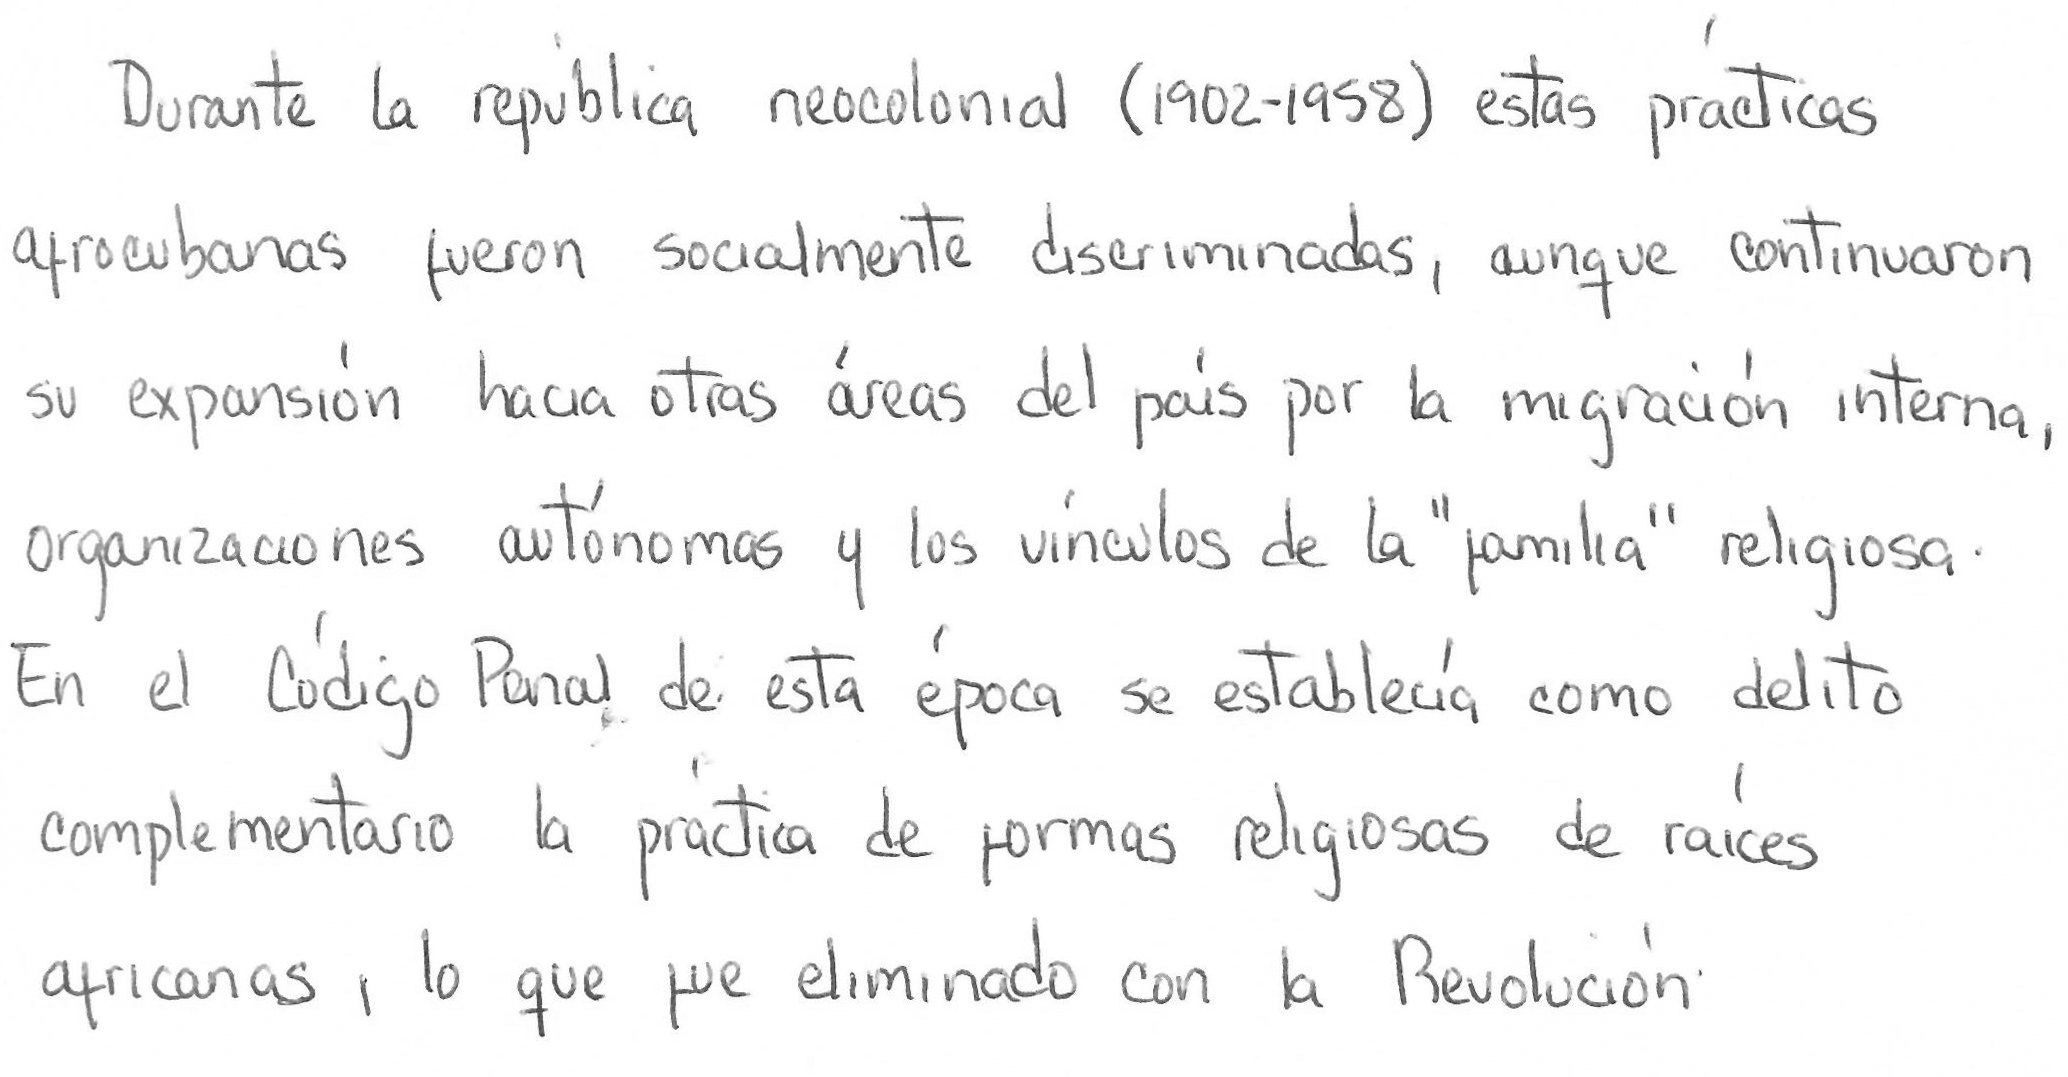 Durante la república neocolonial (1902-1958) estas prácticas
afrocubanas fueron socialmente discriminadas, aunque continuaron
su expansión hacia otras áreas del país por la migración interna,
organizaciones autónomas y los vínculos de la "familia" religiosa.
En el Código Penal de esta época se establecía como delito
complementario la práctica de formas religiosas de raíces
africanas, lo que fue eliminado con la Revolución.